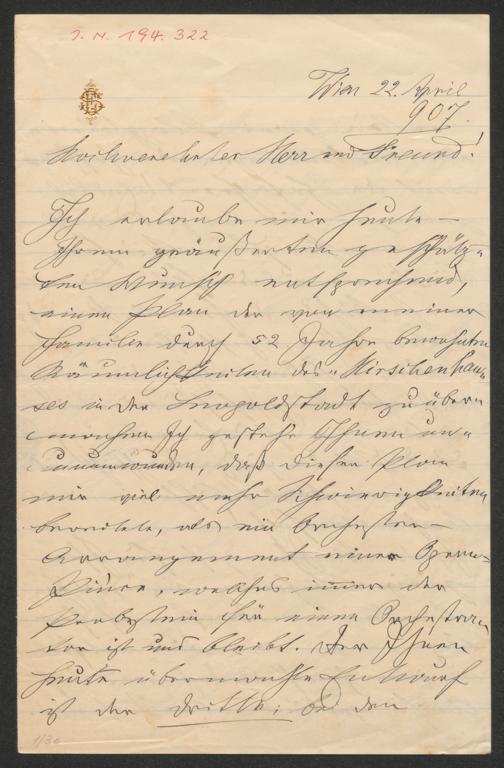 J. N. 194.322
Wien 22. April
907.
Hochverehrter Herr und Freund!
Ich erlaube mir heute –
Ihrem geäußerten geschätz-
ten Wunsch entsprechend,
einen Plan der von meiner
Familie durch 52 Jahre bewohnten
Räumlichkeiten des „Hirschenhau-
ses in der Leopoldstadt zu über-
machen. Ich gestehe Ihnen un-
umwunden, daß dieser Plan
mir viel mehr Schwierigkeiten
bereitete, als ein Orchester-
Arrangement einer Opern-
Pièce, welches immer der
Probstein für einen Orchestra-
tor ist und bleibt. Der Ihnen
heute übermachte Entwurf
ist der dritte; bei den
1/30